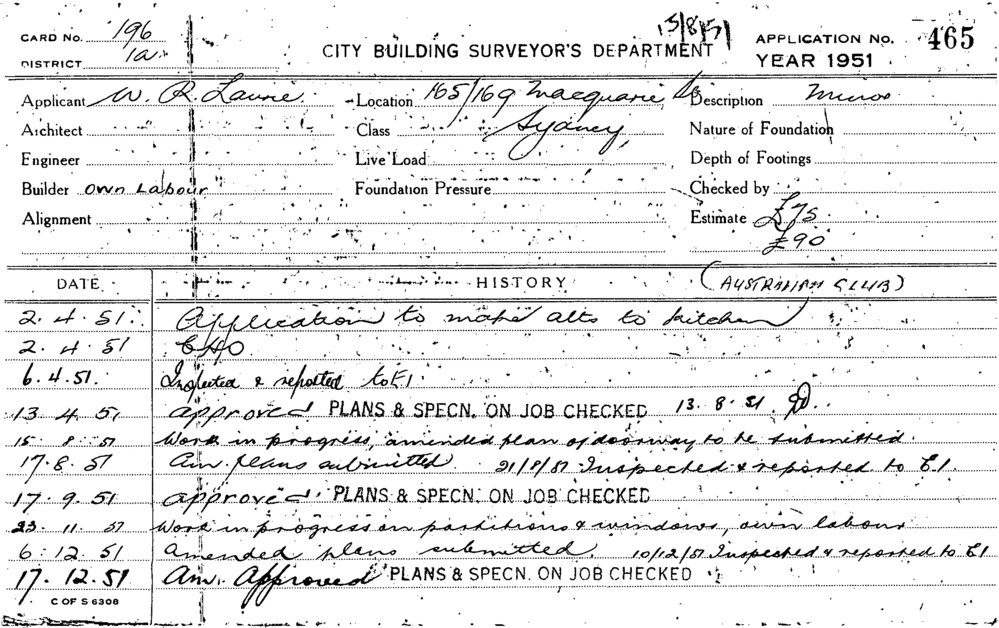 15/8/51
CARD No. 196
DISTRICT 1a
CITY BUILDING SURVEYOR'S DEPARTMENT
APPLICATION No. 465
YEAR 1951
Applicant W. R. Laurie
Location 165/169 Macquarie St
Description Minor
Architect
Class Sydney
Nature of Foundation
Engineer
Live Load
Depth of Footings
Builder own Labour
Foundation Pressure
Checked by
Alignment
Estimate £75
£90
DATE HISTORY (AUSTRALIAN CLUB)
2.4.51 Application to make alts to kitchen
2.4.51 CHO
6.4.51 Inspected & reported to E1
13 4 51 approved PLANS & SPECN. ON JOB CHECKED 13.8.51
15 8 51 Work in progress, amended plan of doorway to be submitted.
17.8.51 Am. plans submitted. 21/8/51 Inspected & reported to E1.
17.9.51 approved. PLANS & SPECN. ON JOB CHECKED
23 11 51 Work in progress on partitions & windows, own labour
6.12.51 Amended plans submitted. 10/12/51 Inspected & reported to E1
17.12.51 Am. Approved PLANS & SPECN. ON JOB CHECKED
C OF S 6308